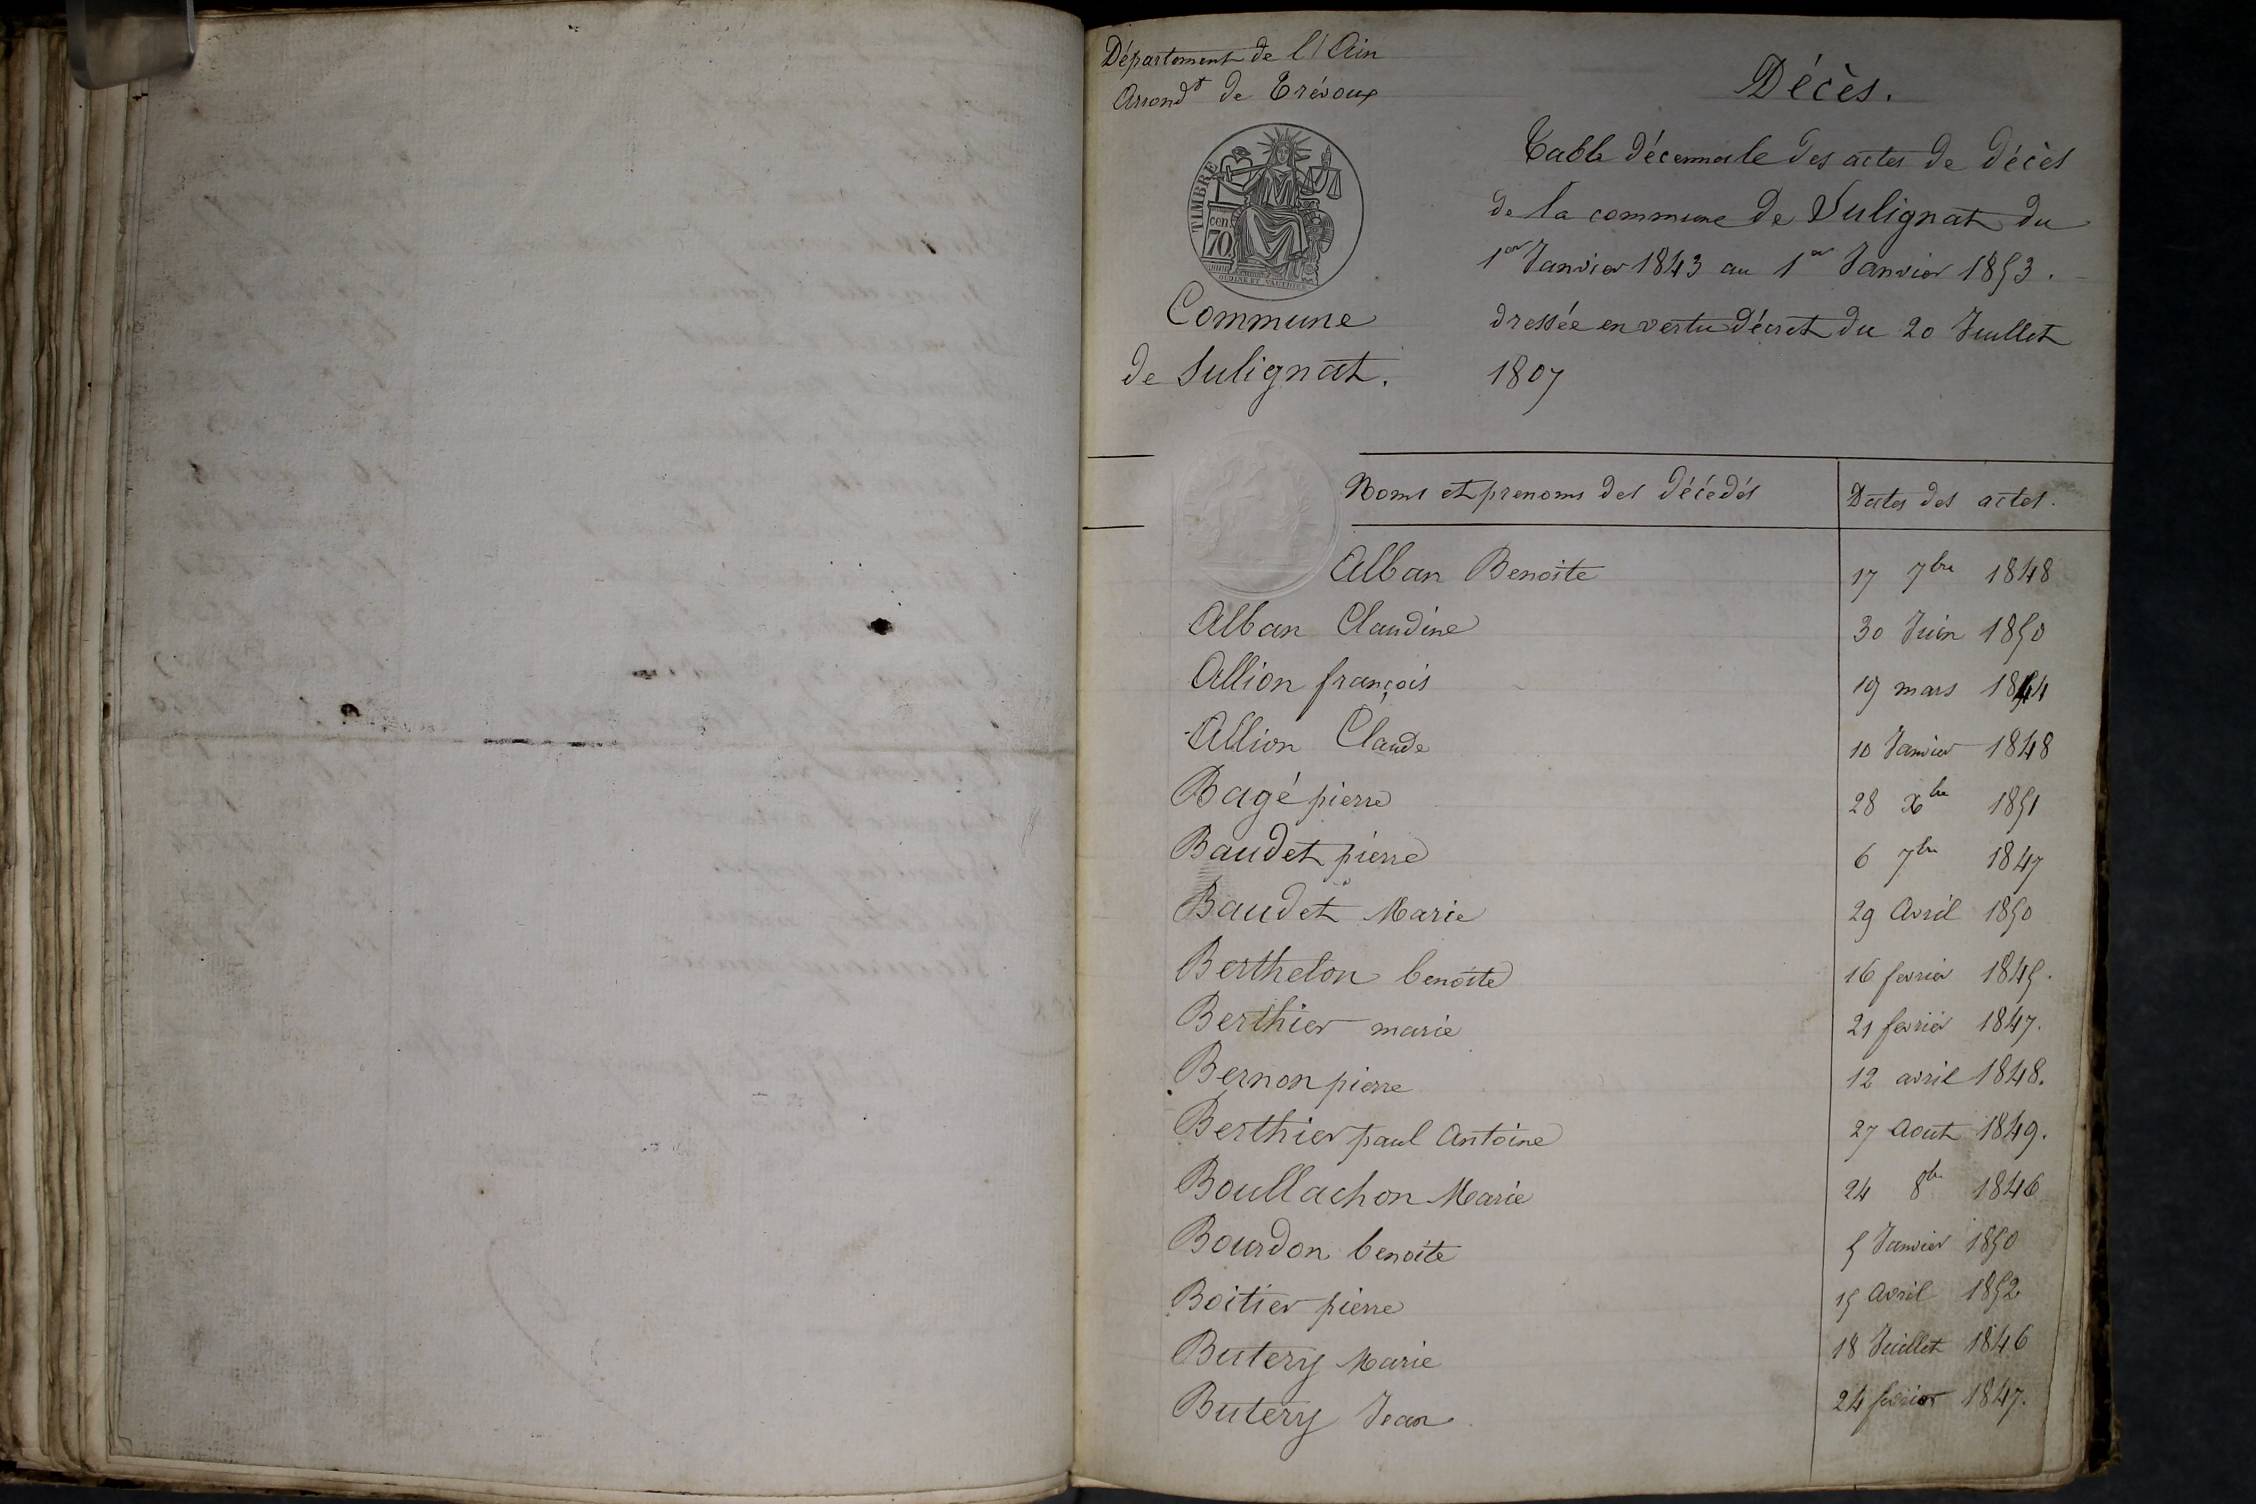 Département de l'Ain
Arrondt de Trévoux
TIMBRE
cen
70
OUDINE ET VAUTHIER
Commune
de Sulignat.
Décès.
Table décennale des actes de décès
de la commune de Sulignat du
1er Janvier 1843 au 1er Janvier 1853.
dressée en vertu décret du 20 Juillet
1807
Noms et prenoms des décédés Dates des actes.
Alban Benoite 17 7bre 1848
Alban Claudine 30 Juin 1850
Allion françois 19 mars 1844
Allion Claude 10 Janvier 1848
Bagé pierre 28 Xbre 1851
Baudet pierre 6 7bre 1847
Baudet Marie 29 Avril 1850
Berthelon benoite 16 fevrier 1845.
Berthier marie 21 fevrier 1847.
Bernon pierre 12 avril 1848.
Berthier paul Antoine 27 Aout 1849.
Boullachon Marie 24 8bre 1846
Bourdon benoite 5 Janvier 1850
Boitier pierre 15 Avril 1852
Butery Marie 18 Juillet 1846
Butery Jean 24 fevrier 1847.